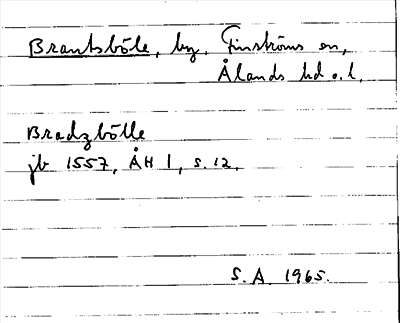 Brantsböle, by, Finströms sn,
Ålands hd o. l.
Bradzbölle
jb 1557, ÅH I, s. 12.
S.A. 1965.